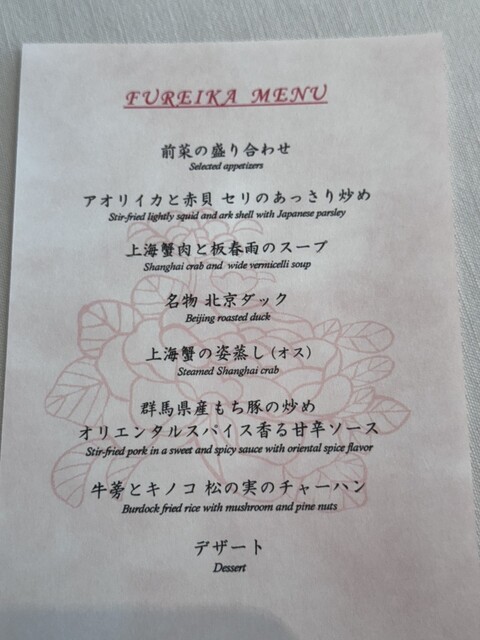 FUREIKA MENU
前菜の盛り合わせ
Selected appetizers
アオリイカと赤貝 セリのあっさり炒め
Stir-fried lightly squid and ark shell with Japanese parsley
上海蟹肉と板春雨のスープ
Shanghai crab and wide vermicelli soup
名物 北京ダック
Beijing roasted duck
上海蟹の姿蒸し(オス)
Steamed Shanghai crab
群馬県産もち豚の炒め
オリエンタルスパイス香る甘辛ソース
Stir-fried pork in a sweet and spicy sauce with oriental spice flavor
牛蒡とキノコ 松の実のチャーハン
Burdock fried rice with mushroom and pine nuts
デザート
Dessert